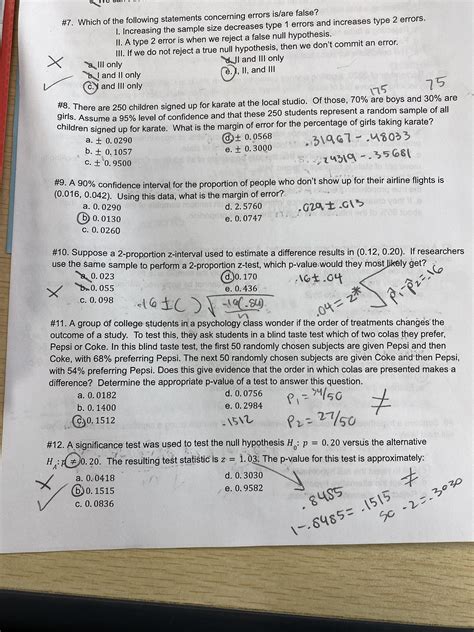 #7. Which of the following statements concerning errors is/are false?
I. Increasing the sample size decreases type 1 errors and increases type 2 errors.
II. A type 2 error is when we reject a false null hypothesis.
III. If we do not reject a true null hypothesis, then we don't commit an error.
a. III only d. II and III only
b. I and II only e. I, II, and III
c. I and III only
175 75
#8. There are 250 children signed up for karate at the local studio. Of those, 70% are boys and 30% are
girls. Assume a 95% level of confidence and that these 250 students represent a random sample of all
children signed up for karate. What is the margin of error for the percentage of girls taking karate?
a. ± 0.0290 d. ± 0.0568 .31967 - .48033
b. ± 0.1057 e. ± 0.3000
c. ± 0.9500 .24319 - .35681
#9. A 90% confidence interval for the proportion of people who don't show up for their airline flights is
(0.016, 0.042). Using this data, what is the margin of error?
a. 0.0290 d. 2.5760 .029 ± .013
b. 0.0130 e. 0.0747
c. 0.0260
#10. Suppose a 2-proportion z-interval used to estimate a difference results in (0.12, 0.20). If researchers
use the same sample to perform a 2-proportion z-test, which p-value would they most likely get?
a. 0.023 d. 0.170 .16 ± .04
b. 0.055 e. 0.436 p̂₁ - p̂₂ = .16
c. 0.098 .16 ± ( ) √ .16(.84) / n .04 = z*
#11. A group of college students in a psychology class wonder if the order of treatments changes the
outcome of a study. To test this, they ask students in a blind taste test which of two colas they prefer,
Pepsi or Coke. In this blind taste test, the first 50 randomly chosen subjects are given Pepsi and then
Coke, with 68% preferring Pepsi. The next 50 randomly chosen subjects are given Coke and then Pepsi,
with 54% preferring Pepsi. Does this give evidence that the order in which colas are presented makes a
difference? Determine the appropriate p-value of a test to answer this question.
a. 0.0182 d. 0.0756 P₁ = 34/50
b. 0.1400 e. 0.2984 ≠
c. 0.1512 .1512 P₂ = 27/50
#12. A significance test was used to test the null hypothesis H₀: p = 0.20 versus the alternative
Hₐ: p ≠ 0.20. The resulting test statistic is z = 1.03. The p-value for this test is approximately:
a. 0.0418 d. 0.3030 ≠
b. 0.1515 e. 0.9582 .8485
c. 0.0836 1 - .8485 = .1515
so · 2 = .3030